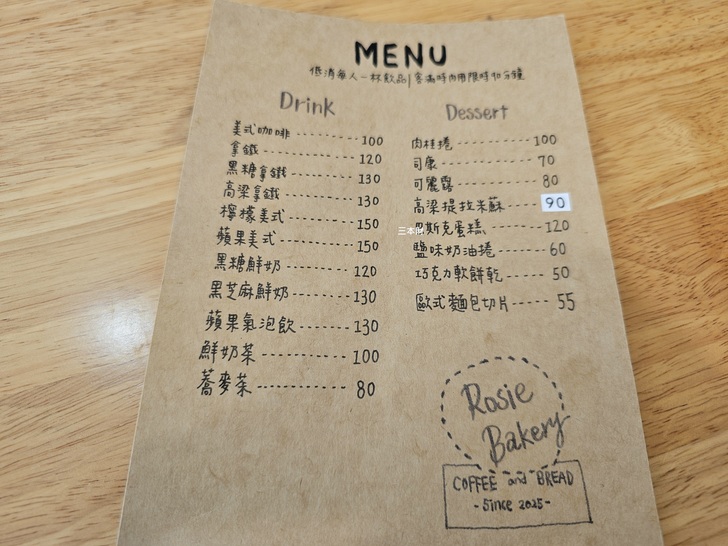 MENU
低消每人一杯飲品/客滿時內用限時90分鐘
Drink
美式咖啡 ---------- 100
拿鐵 ------------- 120
黑糖拿鐵 --------- 130
高粱拿鐵 --------- 130
檸檬美式 --------- 150
蘋果美式 --------- 150
黑糖鮮奶 -------- 120
黑芝麻鮮奶 ------- 130
蘋果氣泡飲 ------- 130
鮮奶茶 ----------- 100
蕎麥茶 ----------- 80
Dessert
肉桂捲 ---------- 100
司康 ----------- 70
可麗露 ---------- 80
高粱提拉米蘇 ----- 90
巴斯克蛋糕 ------- 120
鹽味奶油捲 ------ 60
巧克力軟餅乾 ----- 50
歐式麵包切片 ----- 55
Rosie
Bakery
COFFEE and BREAD
-Since 2025-